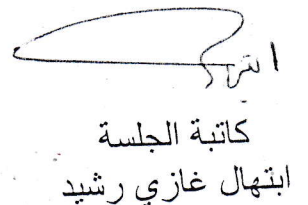 كاتبة الجلسة
ابتهال غازي رشيد